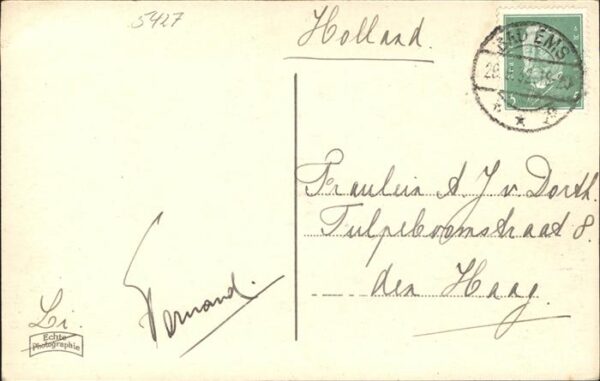 5427
Holland.
BAD EMS
5 5
Fraulein A. J. v. Dorth.
Tulpeboomstraat 8.
den Haag.
Fernand.
Li.
Echte
Photographie